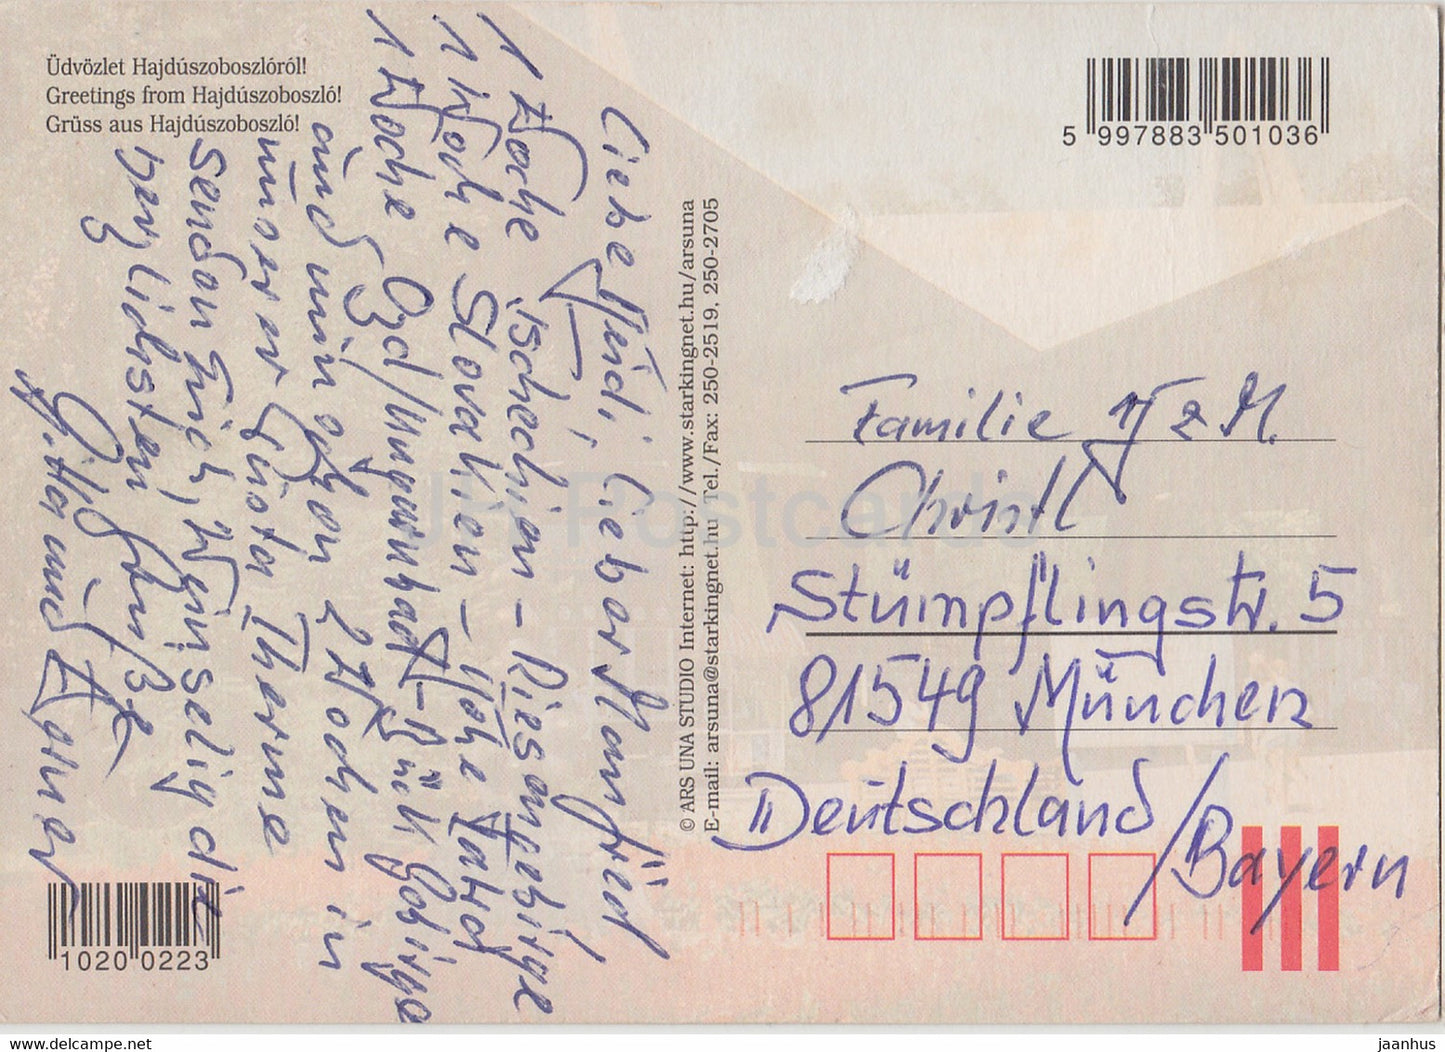 Üdvözlet Hajdúszoboszlóról!
Greetings from Hajdúszoboszló!
Grüss aus Hajdúszoboszló!
Liebe Heidi, lieber Manfred,
1 Woche Tschechien - Riesengebirge
1 Woche Slovakien - Hohe Tatra
1 Woche Ozd/Ungarn - Bükk Gebirge
und nun gehen 2 Wochen in
unserer Therme
senden Dir, die
herzlichsten Grüße
Gitta und Werner
© ARS UNA STUDIO Internet: http://www.starkingnet.hu/arsuna
E-mail: arsuna@starkingnet.hu Tel./Fax: 250-2519, 250-2705
5 997883 501036
Familie H z M.
Christl
Stümpflingstr. 5
81549 München
Deutschland
/Bayern
1020 0223
JH Postcards
www.delcampe.net
jaanhus